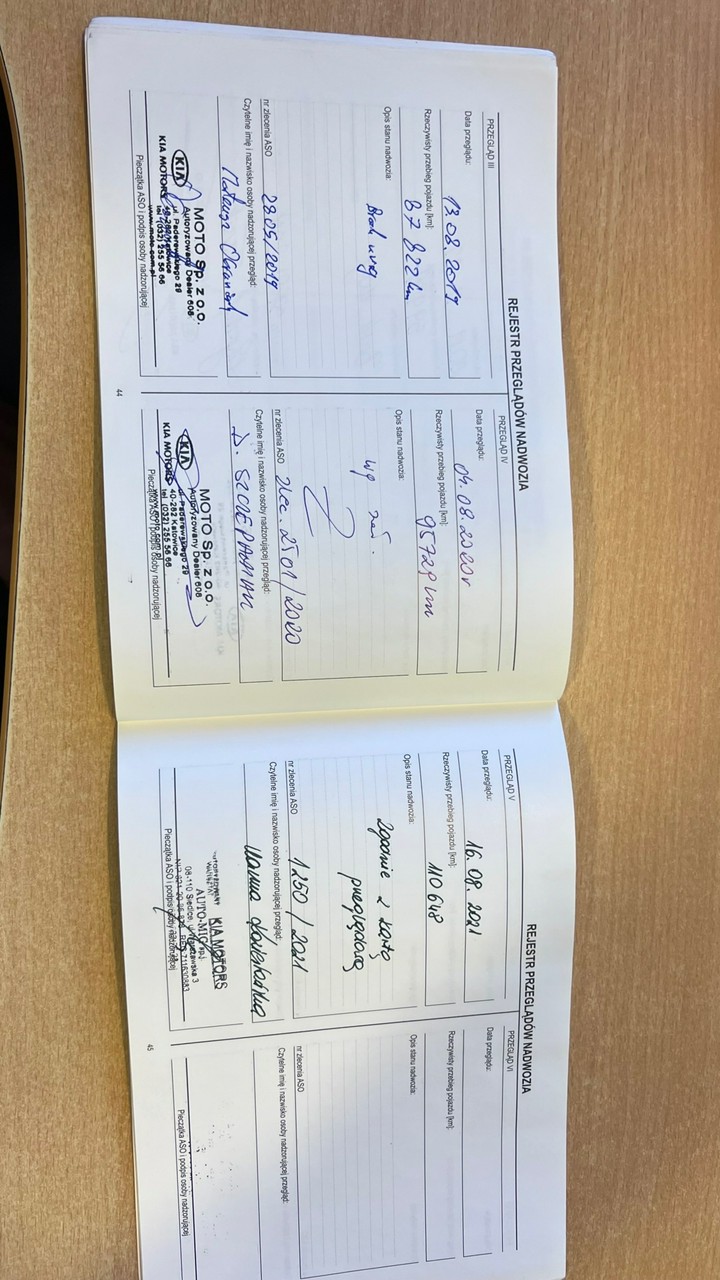 REJESTR PRZEGLĄDÓW NADWOZIA
PRZEGLĄD III
Data przeglądu:
13.08.2019
Rzeczywisty przebieg pojazdu [km]:
87 822 km
Opis stanu nadwozia:
Brak uwag
nr zlecenia ASO
2805/2019
Czytelne imię i nazwisko osoby nadzorującej przegląd:
Mateusz
MOTO Sp. z o.o.
Autoryzowany Dealer 608
ul. Paderewskiego 29
40-282 Katowice
tel. (032) 255 56 66
www.moto.com.pl
KIA
KIA MOTORS
Pieczątka ASO i podpis osoby nadzorującej
44
PRZEGLĄD IV
Data przeglądu:
04.08.2020r
Rzeczywisty przebieg pojazdu [km]:
95729 km
Opis stanu nadwozia:
wg zał.
nr zlecenia ASO
zlec. 2501/2020
Czytelne imię i nazwisko osoby nadzorującej przegląd:
D. SZCZEPANIAK
MOTO Sp. z o.o.
Autoryzowany Dealer 608
ul. Paderewskiego 29
40-282 Katowice
tel. (032) 255 56 66
www.moto.com.pl
KIA
KIA MOTORS
Pieczątka ASO i podpis osoby nadzorującej
REJESTR PRZEGLĄDÓW NADWOZIA
PRZEGLĄD V
Data przeglądu:
16.08.2021
Rzeczywisty przebieg pojazdu [km]:
110 648
Opis stanu nadwozia:
Zgodnie z kartą
przeglądową
nr zlecenia ASO
1250/2021
Czytelne imię i nazwisko osoby nadzorującej przegląd:
KIA MOTORS
08-110 Siedlce, ul. Warszawska 3
Pieczątka ASO i podpis osoby nadzorującej
45
PRZEGLĄD VI
Data przeglądu:
Rzeczywisty przebieg pojazdu [km]:
Opis stanu nadwozia:
nr zlecenia ASO
Czytelne imię i nazwisko osoby nadzorującej przegląd:
Pieczątka ASO i podpis osoby nadzorującej